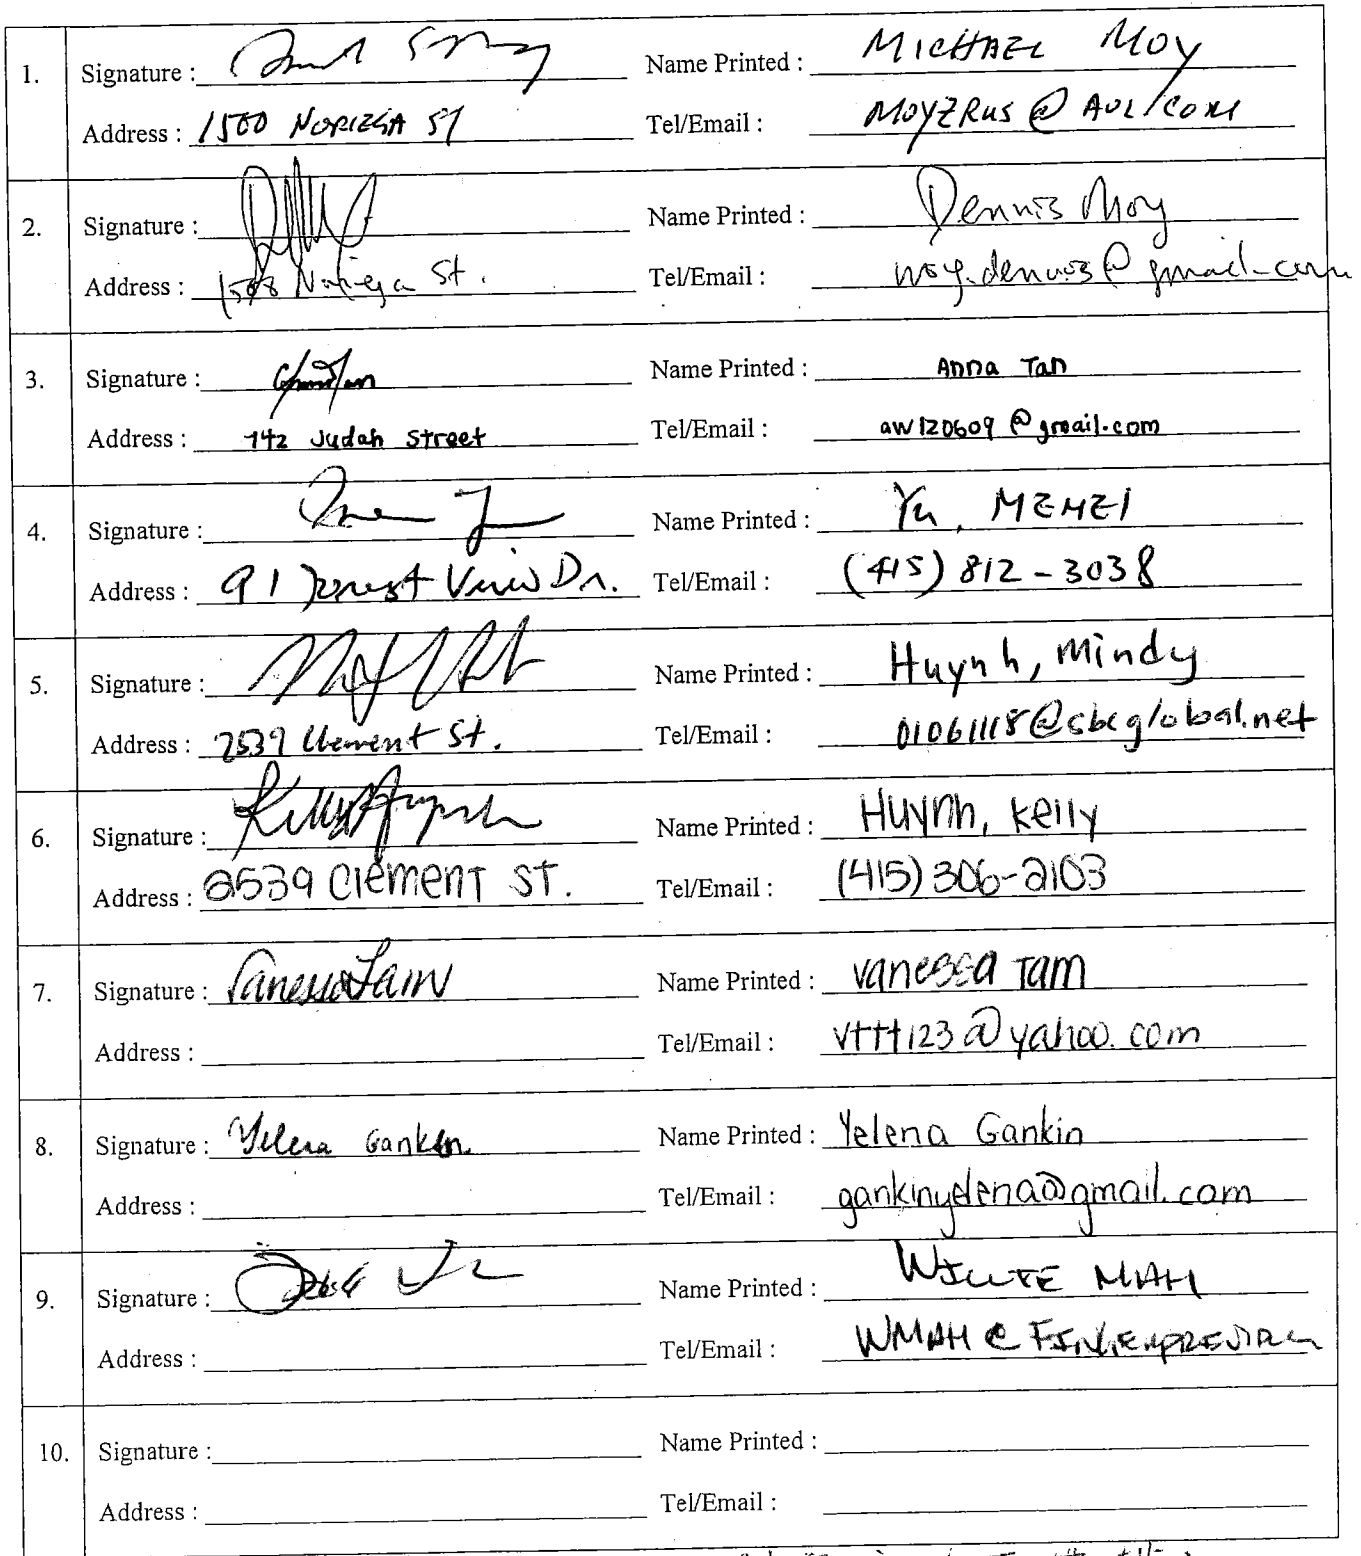 1. Signature : Name Printed : MICHAEL MOY
Address : 1500 NORIEGA ST Tel/Email : MOYZRUS @ AOL/COM
2. Signature : Name Printed : Dennis Moy
Address : 1508 Noriega St. Tel/Email : moy.dennis@gmail.com
3. Signature : Name Printed : Anna Tan
Address : 742 Judah Street Tel/Email : aw120609@gmail.com
4. Signature : Name Printed : Yu, MEMEI
Address : 91 Forest View Dr. Tel/Email : (415) 812-3038
5. Signature : Name Printed : Huynh, Mindy
Address : 2539 Clement St. Tel/Email : 01061118@sbcglobal.net
6. Signature : Kelly Huynh Name Printed : Huynh, Kelly
Address : 2539 Clement ST. Tel/Email : (415) 306-2103
7. Signature : Vanessa Tam Name Printed : Vanessa Tam
Address : Tel/Email : vttt123@yahoo.com
8. Signature : Yelena Gankin Name Printed : Yelena Gankin
Address : Tel/Email : gankinyelena@gmail.com
9. Signature : Name Printed : WILLIE MAH
Address : Tel/Email :
10. Signature : Name Printed :
Address : Tel/Email :